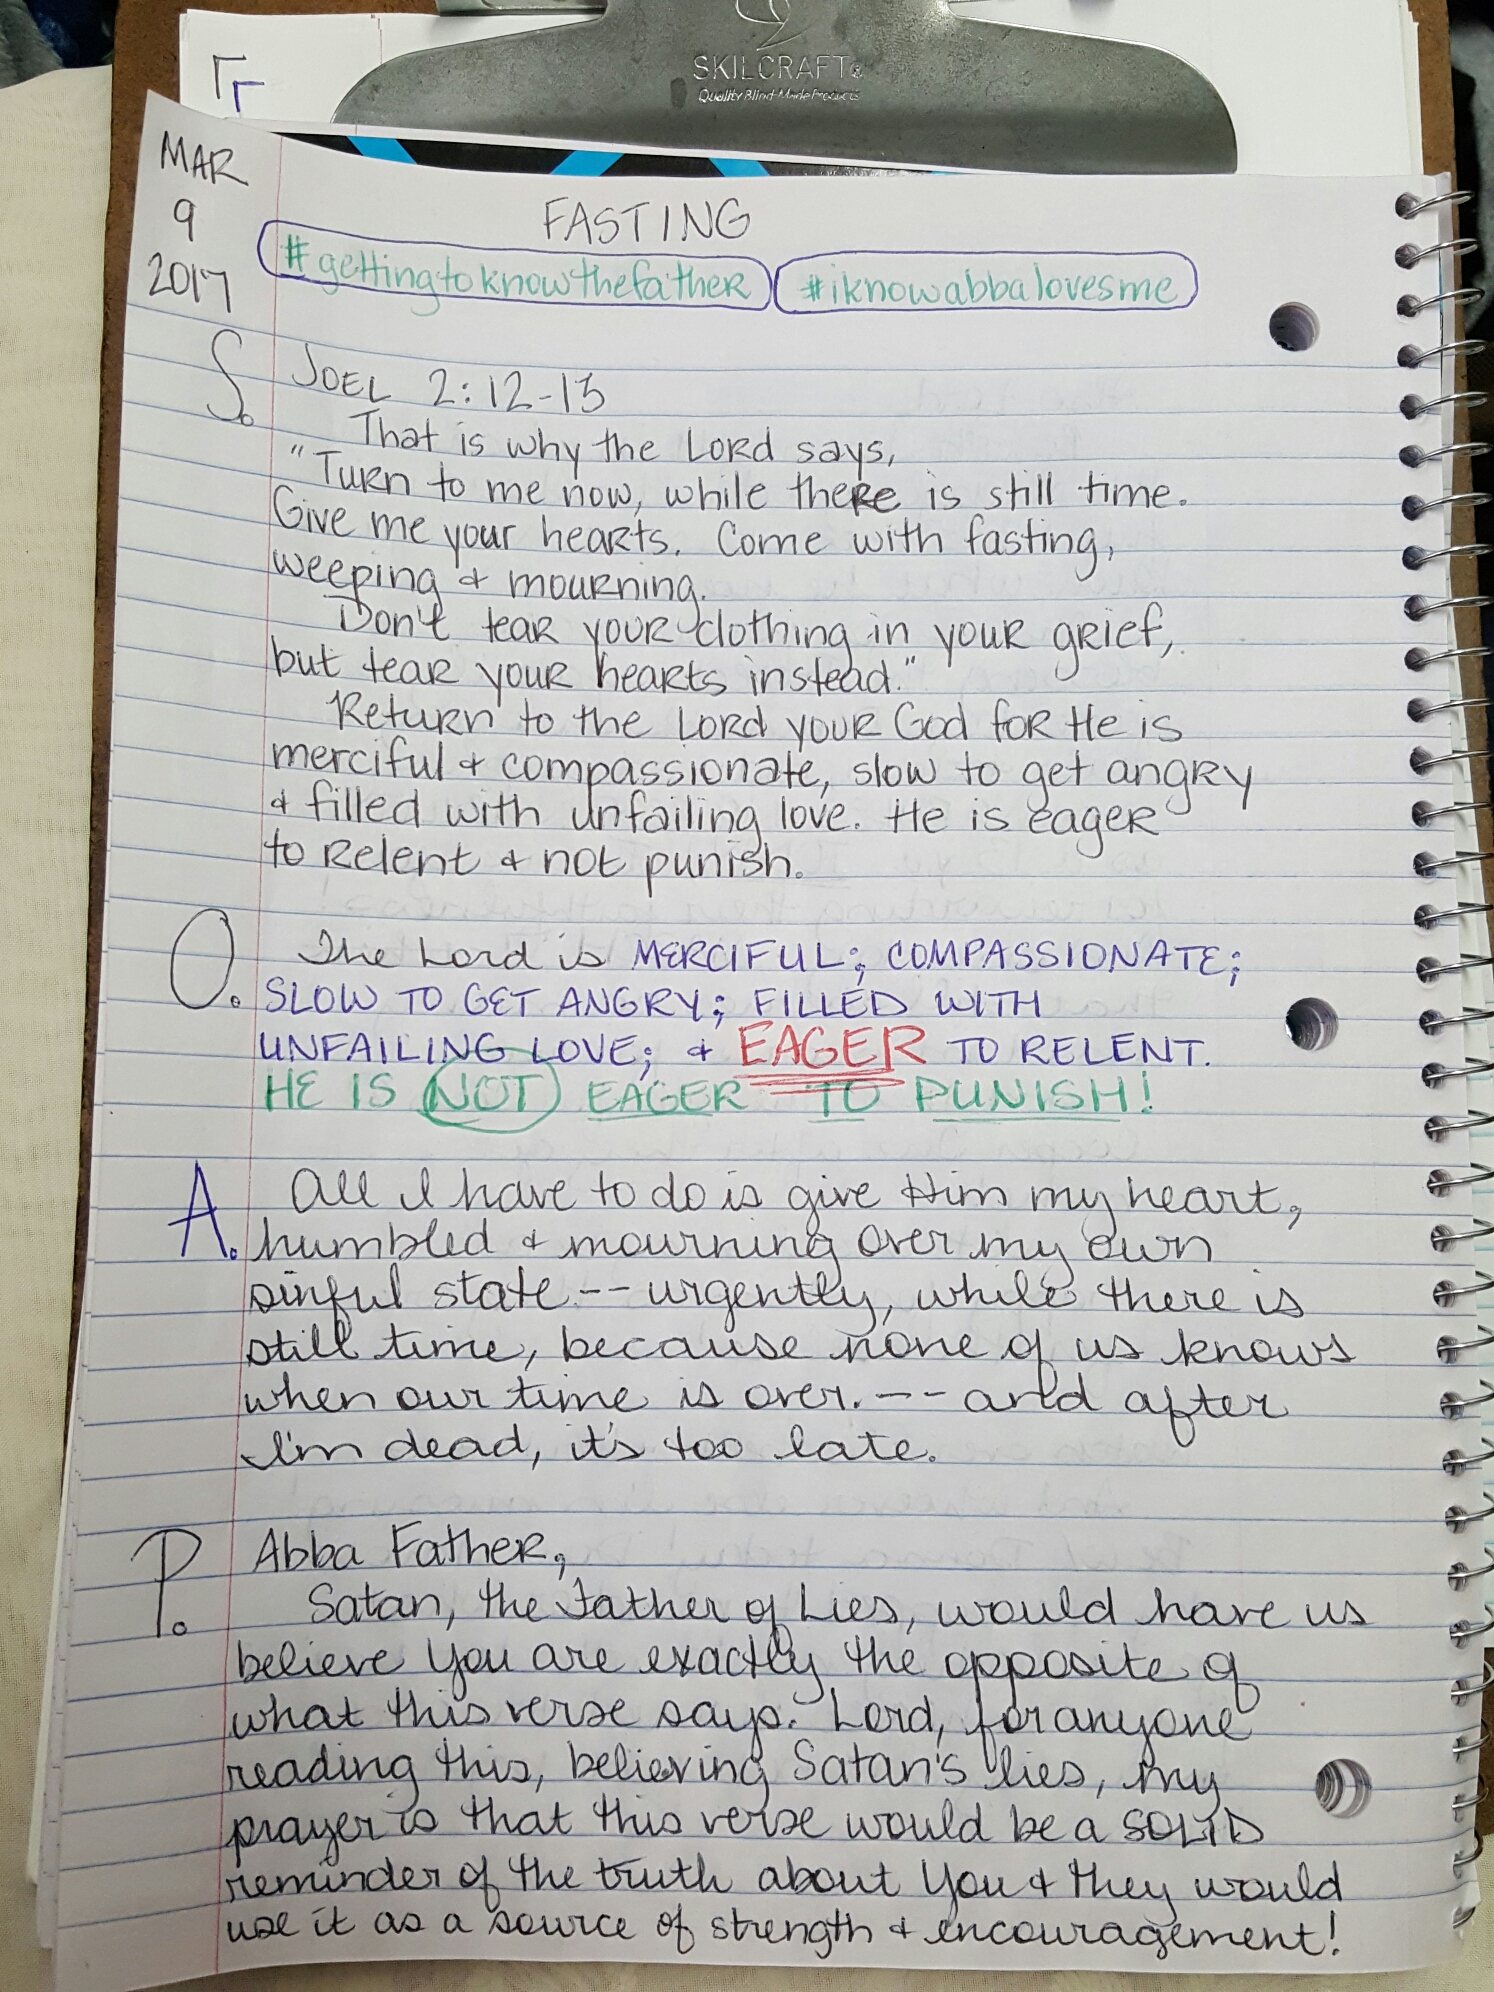 SKILCRAFT®
Quality Blind Made Products
MAR
9
2017
FASTING
#gettingtoknowthefather #iknowabbalovesme
S. JOEL 2:12-13
That is why the Lord says,
"Turn to me now, while there is still time.
Give me your hearts. Come with fasting,
weeping & mourning.
Don't tear your clothing in your grief,
but tear your hearts instead."
Return to the Lord your God for He is
merciful & compassionate, slow to get angry
& filled with unfailing love. He is eager
to relent & not punish.
O. The Lord is MERCIFUL; COMPASSIONATE;
SLOW TO GET ANGRY; FILLED WITH
UNFAILING LOVE; & EAGER TO RELENT.
HE IS NOT EAGER TO PUNISH!
A. All I have to do is give Him my heart,
humbled & mourning over my own
sinful state -- urgently, while there is
still time, because none of us knows
when our time is over. -- and after
I'm dead, it's too late.
P. Abba Father,
Satan, the Father of Lies, would have us
believe You are exactly the opposite of
what this verse says. Lord, for anyone
reading this, believing Satan's lies, my
prayer is that this verse would be a SOLID
reminder of the truth about You & they would
use it as a source of strength & encouragement!